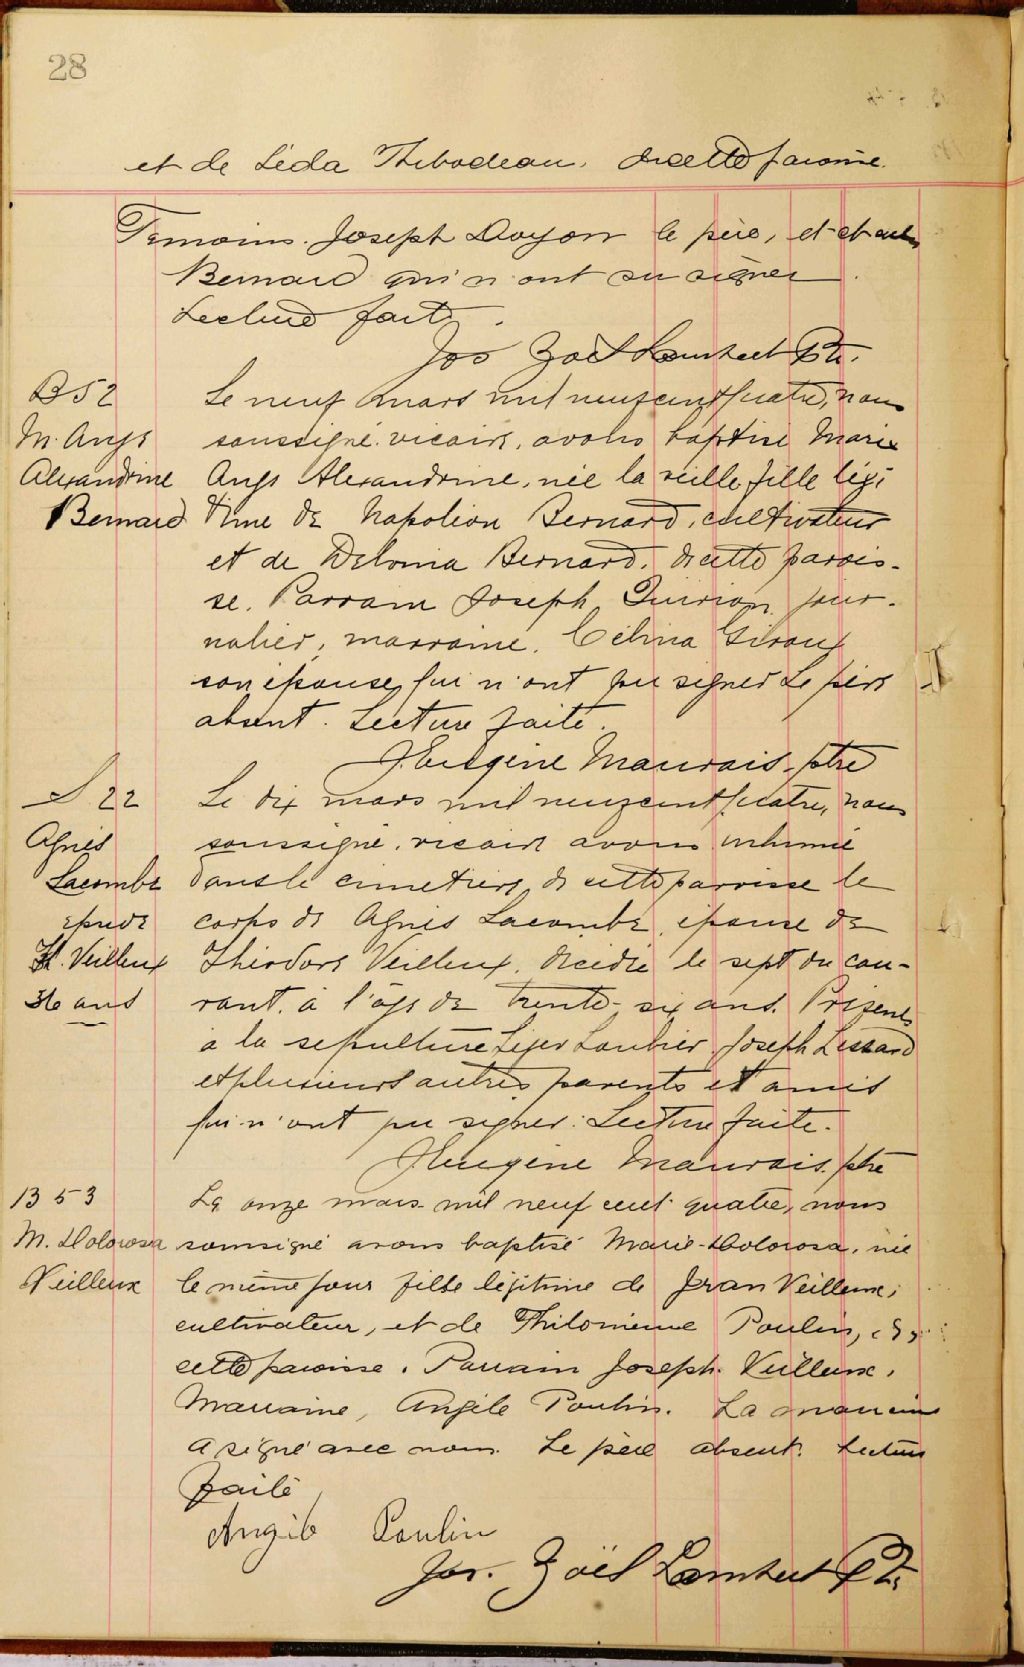 28
et de Léda Thibodeau, de cette paroisse.
Temoins. Joseph Doyon le père, et
Bernard qui n'ont su signer
Lecture faite.
Jos Zoël Lambert Ptr.
B 52
M. Ange
Alexandrine
Bernard
Le neuf mars mil neuf cent quatre, nous
soussigné vicaire, avons baptisé Marie
Ange Alexandrine, née la veille fille légi
time de Napoléon Bernard, cultivateur
et de Delvina Bernard, de cette parois-
se. Parrain Joseph Quirion jour-
nalier, marraine, Célina Giroux
son épouse qui n'ont pu signer Le père
absent. Lecture faite.
J Eugène Mauvais ptre
S 22
Agnès
Lacombe
épse de
Th. Veilleux
36 ans
Le dix mars mil neuf cent quatre, nous
soussigné, vicaire avons inhumé
dans le cimetière de cette paroisse le
corps de Agnès Lacombe, épouse de
Théodore Veilleux, décédée le sept du cou-
rant, à l'âge de trente-six ans. Présents
à la sepulture Léger Loubier Joseph Lessard
et plusieurs autres parents et amis
qui n'ont pu signer. Lecture faite.
J Eugène Mauvais. ptre
B 53
M. Dolorosa
Veilleux
Le onze mars mil neuf cent quatre, nous
soussigné avons baptisé Marie-Dolorosa, née
le même jour fille légitime de Jean Veilleux,
cultivateur, et de Philomène Poulin, de
cette paroisse. Parrain Joseph Veilleux,
Marraine, Angèle Poulin. La marraine
a signé avec nous. Le père absent. Lecture
faite
Angèle Poulin
Jos. Zoël Lambert Ptr.